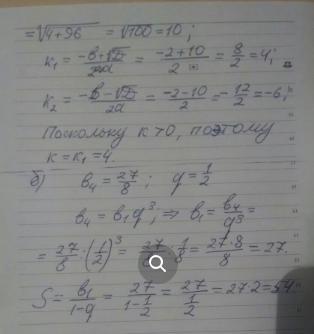 =√4+96 = √100 = 10;
k₁ = (-b+√D)/2a = (-2+10)/2 = 8/2 = 4;
k₂ = (-b-√D)/2a = (-2-10)/2 = -12/2 = -6;
Поскольку k>0, поэтому
k=k₁=4.
б) b₄ = 27/8; q = 1/2
b₄ = b₁q³, ⇒ b₁ = b₄/q³ =
= 27/8 : (1/2)³ = 27/8 : 1/8 = 27·8/8 = 27.
S = b₁/(1-q) = 27/(1-1/2) = 27/(1/2) = 27·2 = 54